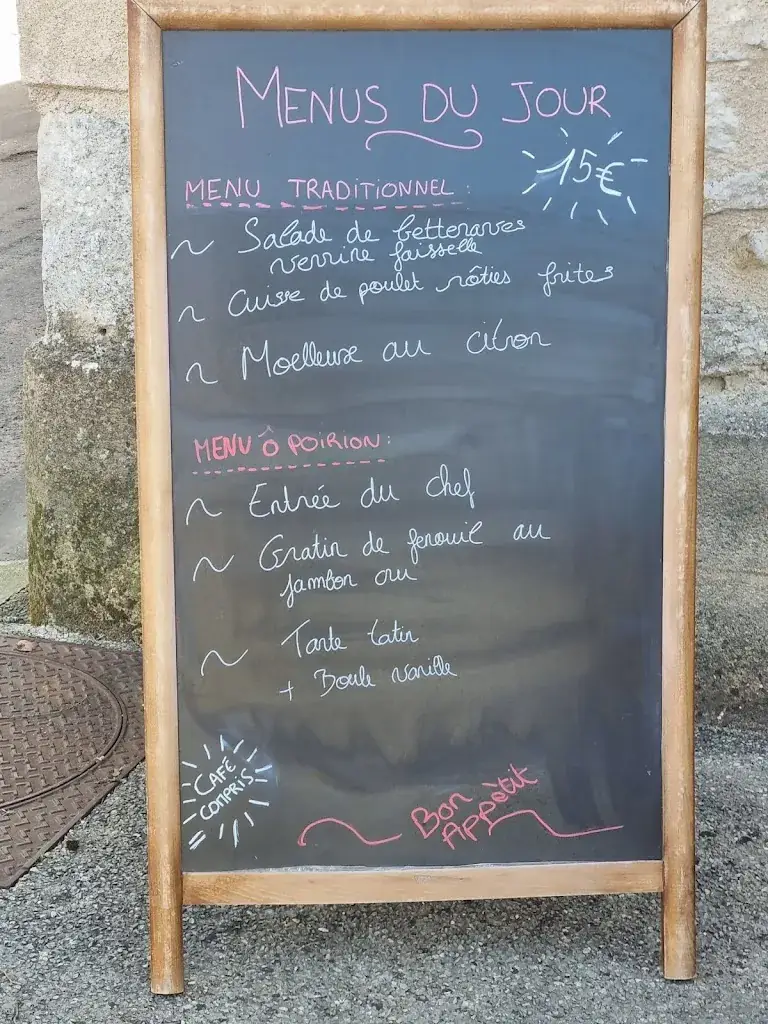 MENUS DU JOUR
15€
MENU TRADITIONNEL :
~ Salade de betteraves
verrine faisselle
~ Cuisse de poulet rôties frites
~ Moelleux au citron
MENU Ô POIRION :
~ Entrée du chef
~ Gratin de fenouil au
jambon cru
~ Tarte tatin
+ Boule vanille
CAFÉ
COMPRIS
BON
APPÉTIT